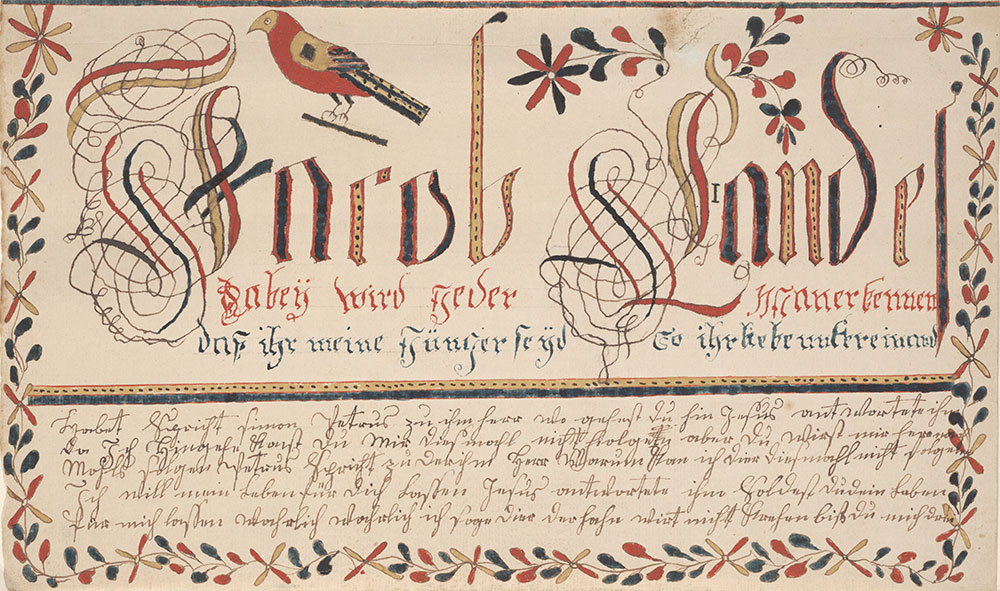 Jacob Landes
Dabey wird Jeder Man erkennen
daß ihr meine Jünger seyd So ihr liebe unter einand
Habet Spricht simon Petrus zu ihm herr wo gehest du hin Jesus antwortete ihm
Da Ich Hingehe kanst Du Mir diesmahl nicht folgen aber Du wirst mir hernach
Mahls folgen Petrus Spricht zu Herr Warum kan ich dier diesmahl nicht folgen
Ich will mein Leben für dich Lassen Jesus antwortete ihm Soldest du dein Leben
Für mich lassen wahrlich wahrlich ich sage dier der hahn wirt nicht krehen biß du mich